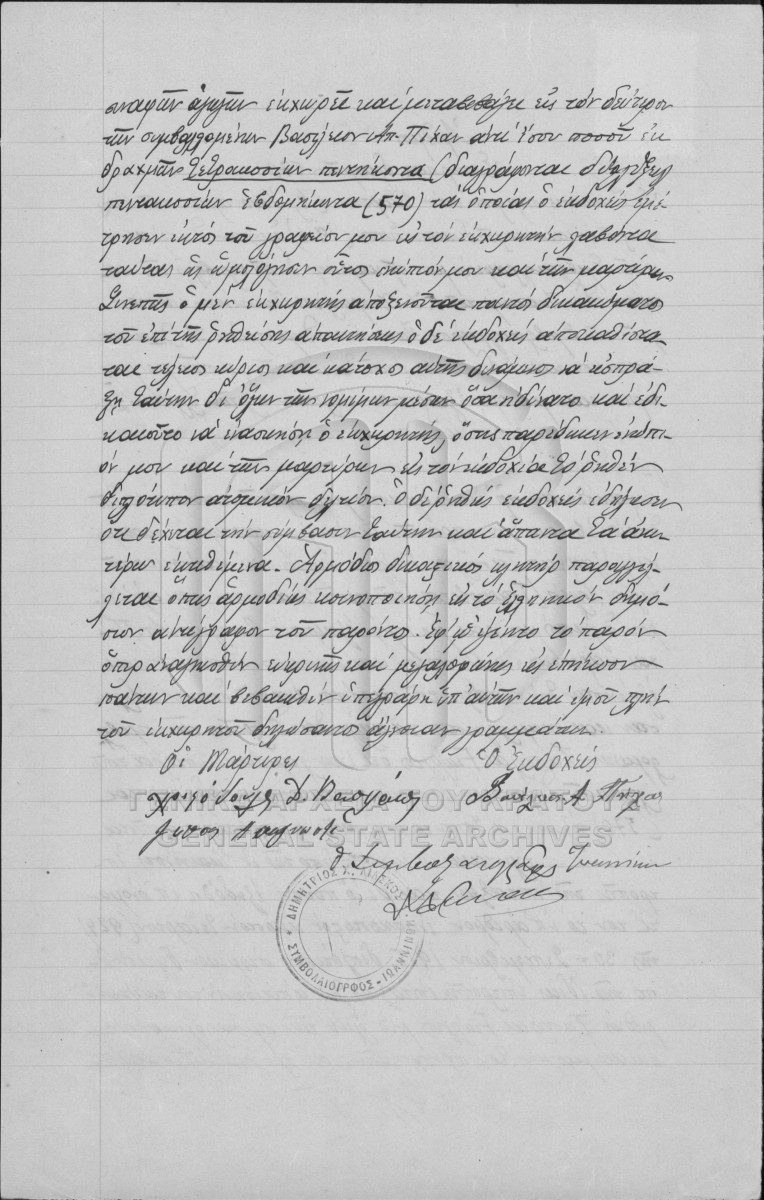 συναφῶν ἀγωγῶν ἐκχωρεῖ καὶ μεταβιβάζει εἰς τὸν δεύτερον
τῶν συμβαλλομένων Βασίλειον Ἀπ. Πήχαν ἀντὶ ἴσου ποσοῦ ἐκ
δραχμῶν τετρακοσίων πεντήκοντα (διαγράφονται δύο λέξεις)
πεντακοσίων ἑβδομήκοντα (570) τὰς ὁποίας ὁ ἐκδοχεὺς ἐμέ-
τρησεν ἐκτὸς τοῦ γραφείου μου εἰς τὸν ἐκχωρητὴν λαβόντα
ταύτας ὡς ὡμολόγησεν οὗτος ἐνώπιόν μου καὶ τῶν μαρτύρων
Συνεπῶς ὁ μὲν ἐκχωρητὴς ἀποξενοῦται παντὸς δικαιώματος
τοῦ ἐπὶ τῆς ῥηθείσης ἀπαιτήσεως ὁ δὲ ἐκδοχεὺς ἀποκαθίστα-
ται τέλειος κύριος καὶ κάτοχος αὐτῆς δυνάμενος νὰ εἰσπρά-
ξῃ ταύτην δι' ὅλων τῶν νομίμων μέσων ὅσα ἠδύνατο καὶ ἐδι-
καιοῦτο νὰ ἐνασκήσῃ ὁ ἐκχωρητής, ὅστις παρέδωκεν ἐνώπι-
όν μου καὶ τῶν μαρτύρων εἰς τὸν ἐκδοχέα τὸ ῥηθὲν
διπλότυπον ἀτομικὸν δελτίον. Ὁ δὲ ῥηθεὶς ἐκδοχεὺς ἐδήλωσεν
ὅτι δέχεται τὴν σύμβασιν ταύτην καὶ ἅπαντα τὰ ἀνω-
τέρω ἐκτεθειμένα. Ἁρμόδιος δικαστικὸς κλητὴρ παραγγέλ-
λεται ὅπως ἁρμοδίως κοινοποιήσῃ εἰς τὸ Ἑλληνικὸν δημό-
σιον ἀντίγραφον τοῦ παρόντος. Ἐφ' ᾧ ἐγένετο τὸ παρὸν
ὅπερ ἀναγνωσθὲν εὐκρινῶς καὶ μεγαλοφώνως εἰς ἐπήκοον
πάντων καὶ βεβαιωθὲν ὑπεγράφη ὑπ' αὐτῶν καὶ ἐμοῦ πλὴν
τοῦ ἐκχωρητοῦ δηλώσαντος ἄγνοιαν γραμμάτων.
Οἱ Μάρτυρες Ὁ Ἐκδοχεὺς
Δ. Βασίλειος Α Πήχας
Ὁ Συμβολαιογράφος Ἰωαννίνων
ΓΕΝΙΚΑ ΑΡΧΕΙΑ ΤΟΥ ΚΡΑΤΟΥΣ
GENERAL STATE ARCHIVES
ΔΗΜΗΤΡΙΟΣ Χ.
ΣΥΜΒΟΛΑΙΟΓΡΦΟΣ - ΙΩΑΝΝΙΝΩΝ